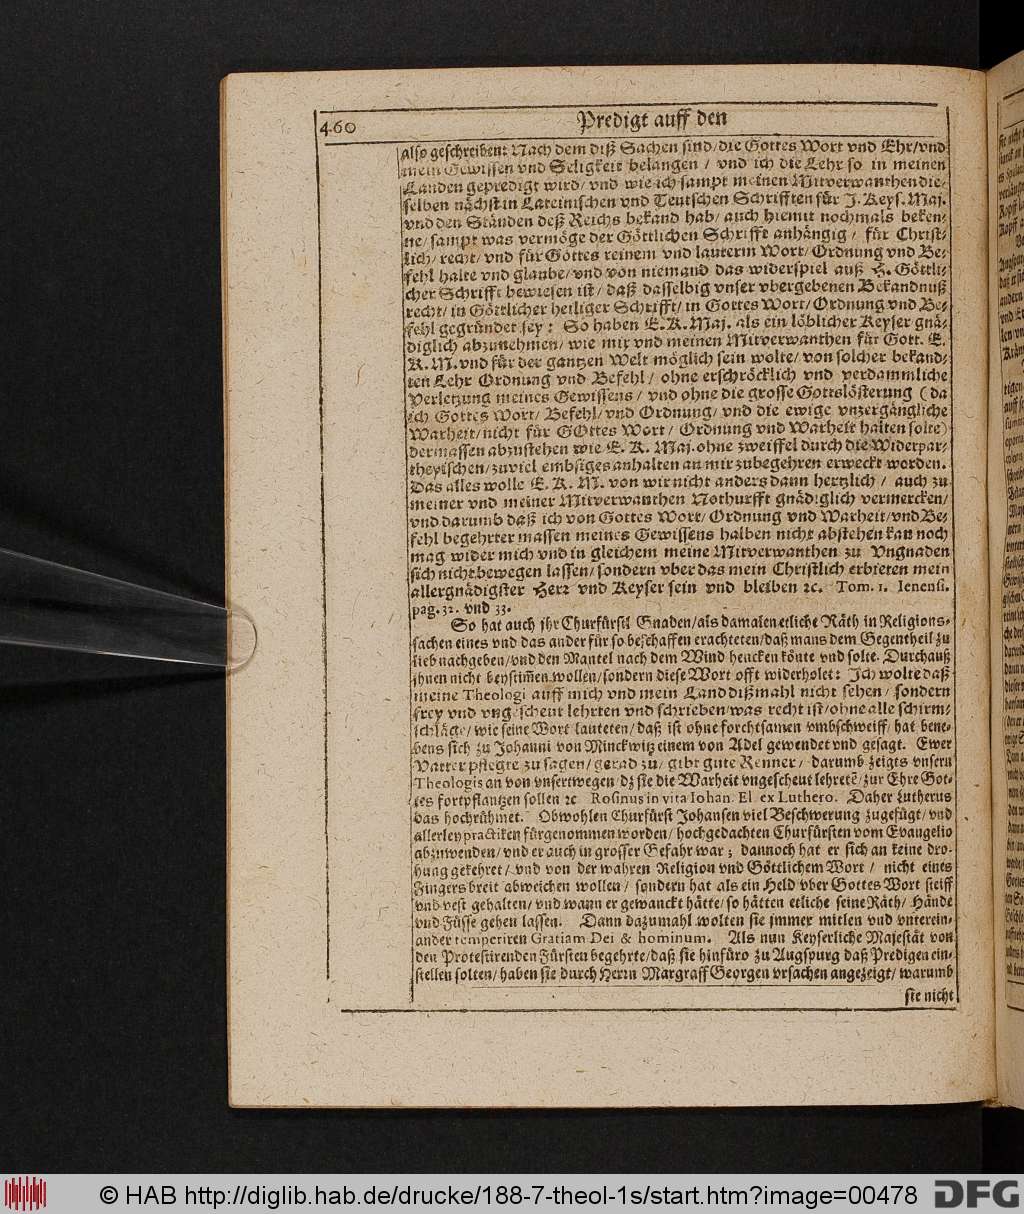 460
Predigt auff den
also geschreiben: Nach dem diß Sachen sind/die Gottes Wort vnd Ehr/vnd
mein Gewissen vnd Seligkeit belangen / vnd ich die Lehr so in meinen
Landen gepredigt wird/ vnd wie ich sampt meinen Mitverwanthen die-
selben nächst in Lateinischen vnd Teutschen Schrifften für J. Keys. Maj.
vnd den Ständen deß Reichs bekand hab/ auch hiemit nochmals beken-
ne/ sampt was vermöge der Göttlichen Schrifft anhängig / für Christ-
lich/ recht/ vnd für Gottes reinem vnd lauterm Wort/ Ordnung vnd Be-
fehl halte vnd glaube/ vnd von niemand das widerspiel auß H. Göttli-
cher Schrifft bewiesen ist/ daß dasselbig vnser vbergebenen Bekandnuß
recht/ in Göttlicher heiliger Schrifft/ in Gottes Wort/ Ordnung vnd Be-
fehl gegründet sey: So haben E. K. Maj. als ein löblicher Keyser gnä-
diglich abzunehmen/ wie mir vnd meinen Mitverwanthen für Gott. E.
K. M. vnd für der gantzen Welt möglich sein wolte/ von solcher bekand-
ten Lehr Ordnung vnd Befehl/ ohne erschröcklich vnd verdammliche
Verletzung meines Gewissens/ vnd ohne die grosse Gottslösterung (da
ich Gottes Wort/ Befehl/ vnd Ordnung/ vnd die ewige vnzergängliche
Warheit/ nicht für GOttes Wort / Ordnung vnd Warheit halten solte)
dermassen abzustehen wie E. K. Maj. ohne zweiffel durch die Widerpar-
theyischen/ zuviel embsiges anhalten an mir zubegehren erweckt worden.
Das alles wolle E. K. M. von wir nicht anders dann hertzlich / auch zu
meiner vnd meiner Mitverwanthen Nothurfft gnädiglich vermercken/
vnd darumb daß ich von Gottes Wort/ Ordnung vnd Warheit/ vnd Be-
fehl begehrter massen meines Gewissens halben nicht abstehen kan noch
mag wider mich vnd in gleichem meine Mitverwanthen zu Vngnaden
sich nicht bewegen lassen/ sondern vber das mein Christlich erbieten mein
allergnädigster Herr vnd Keyser sein vnd bleiben ꝛc. Tom. 1. Ienensi.
pag. 32. vnd 33.
So hat auch jhr Churfürstl Gnaden/ als damalen etliche Räth in Religions-
sachen eines vnd das ander für so beschaffen erachteten/ daß mans dem Gegentheil zu
lieb nachgeben/ vnd den Mantel nach dem Wind hencken könte vnd solte. Durchauß
jhnen nicht beystim̃en wollen/ sondern diese Wort offt widerholet: Ich wolte daß
meine Theologi auff mich vnd mein Land dißmahl nicht sehen/ sondern
frey vnd vngescheut lehrten vnd schrieben/ was recht ist/ ohne alle schirm-
schläge/ wie seine Wort lauteten/ daß ist ohne forchtsamen vmbschweiff/ hat bene-
bens sich zu Johanni von Minckwitz einem von Adel gewendet vnd gesagt. Ewer
Vatter pflegte zu sagen/ gerad zu/ gibt gute Renner/ darumb zeigts vnsern
Theologis an von vnsertwegen/ dz sie die Warheit vngescheut lehretẽ/ zur Ehre Got-
tes fortpflantzen sollen ꝛc Rosinus in vita Iohan. El. ex Luthero. Daher Lutherus
das hochrühmet. Obwohlen Churfürst Johansen viel Beschwerung zugefügt/ vnd
allerley practiken fürgenommen worden/ hochgedachten Churfürsten vom Evangelio
abzuwenden/ vnd er auch in grosser Gefahr war; dannoch hat er sich an keine dro-
hung gekehret/ vnd von der wahren Religion vnd Göttlichem Wort / nicht eines
Fingers breit abweichen wollen/ sondern hat als ein Held vber Gottes Wort steiff
vnd vest gehalten/ vnd wann er gewanckt hätte/ so hätten etliche seine Räth/ Hände
vnd Füsse gehen lassen. Dann dazumahl wolten sie jmmer mitlen vnd vnterein-
ander temperiren Gratiam Dei & hominum. Als nun Keyserliche Majestät von
den Protestirenden Fürsten begehrte/ daß sie hinfüro zu Augspurg daß Predigen ein-
stellen solten/ haben sie durch Herrn Margraff Georgen vrsachen angezeigt/ warumb
sie nicht
© HAB http://diglib.hab.de/drucke/188-7-theol-1s/start.htm?image=00478
DFG